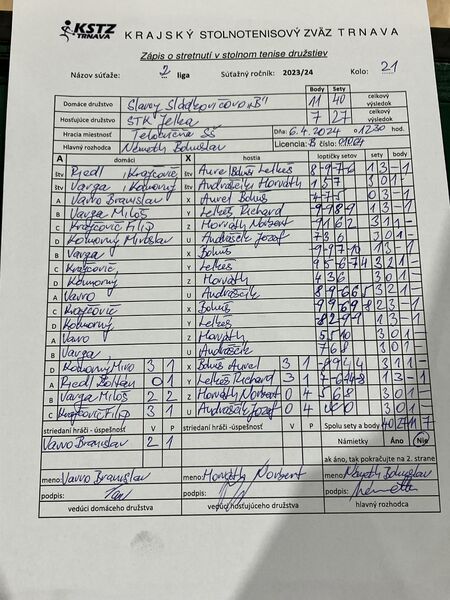 KSTZ TRNAVA KRAJSKÝ STOLNOTENISOVÝ ZVÄZ TRNAVA
Zápis o stretnutí v stolnom tenise družstiev
Názov súťaže: 2 liga Súťažný ročník: 2023/24 Kolo: 21
Body Sety
Domáce družstvo Slavoj Sládkovičovo „B" 11 40 celkový výsledok
Hosťujúce družstvo STK Jelka 7 27 celkový výsledok
Hracia miestnosť Telocvičňa SŠ Dňa: 6.4.2024 o 12 30 hod.
Hlavný rozhodca Németh Bohuslav Licencia: B číslo:
A domáci X hostia loptičky setov sety body
štv Riedl, Krajčovič štv Aurel Bohuš Lelkeš 1 3 - 1
štv Varga, Kolmorný štv Andrášik Horváth 1 5 7 3 0 1 -
A Vavro Branislav X Aurel Bohuš 0 3 - 1
B Varga Miloš Y Lelkeš Richard 1 3 - 1
C Krajčovič Filip Z Horváth Norbert 3 1 1 -
D Kolmorný Miroslav U Andrášik Jozef 7 3 6 3 0 1 -
B Varga X Bohuš 1 3 - 1
C Krajčovič Y Lelkeš 3 2 1 -
D Kolmorný Z Horváth 4 3 6 3 0 1 -
A Vavro U Andrášik 3 2 1 -
C Krajčovič X Bohuš 2 3 - 1
D Kolmorný Y Lelkeš 1 3 - 1
A Vavro Z Horváth 3 0 1 -
B Varga U Andrášik 7 6 8 3 0 1 -
D Kolmorný Miro 3 1 X Bohuš Aurel 3 1 3 1 1 -
A Riedl Zoltán 0 1 Y Lelkeš Richard 3 1 1 3 - 1
B Varga Miloš 2 2 Z Horváth Norbert 0 4 5 6 8 3 0 1 -
C Krajčovič Filip 3 1 U Andrášik Jozef 0 4 3 0 1 -
striedaní hráči - úspešnosť V P striedaní hráči - úspešnosť V P Spolu sety a body 40 27 11 7
Vavro Branislav 2 1 Námietky Áno Nie
ak áno, tak pokračujte na 2. strane
meno: Vavro Branislav meno: Horváth Norbert meno: Németh Bohuslav
podpis: podpis: podpis:
vedúci domáceho družstva vedúci hosťujúceho družstva hlavný rozhodca